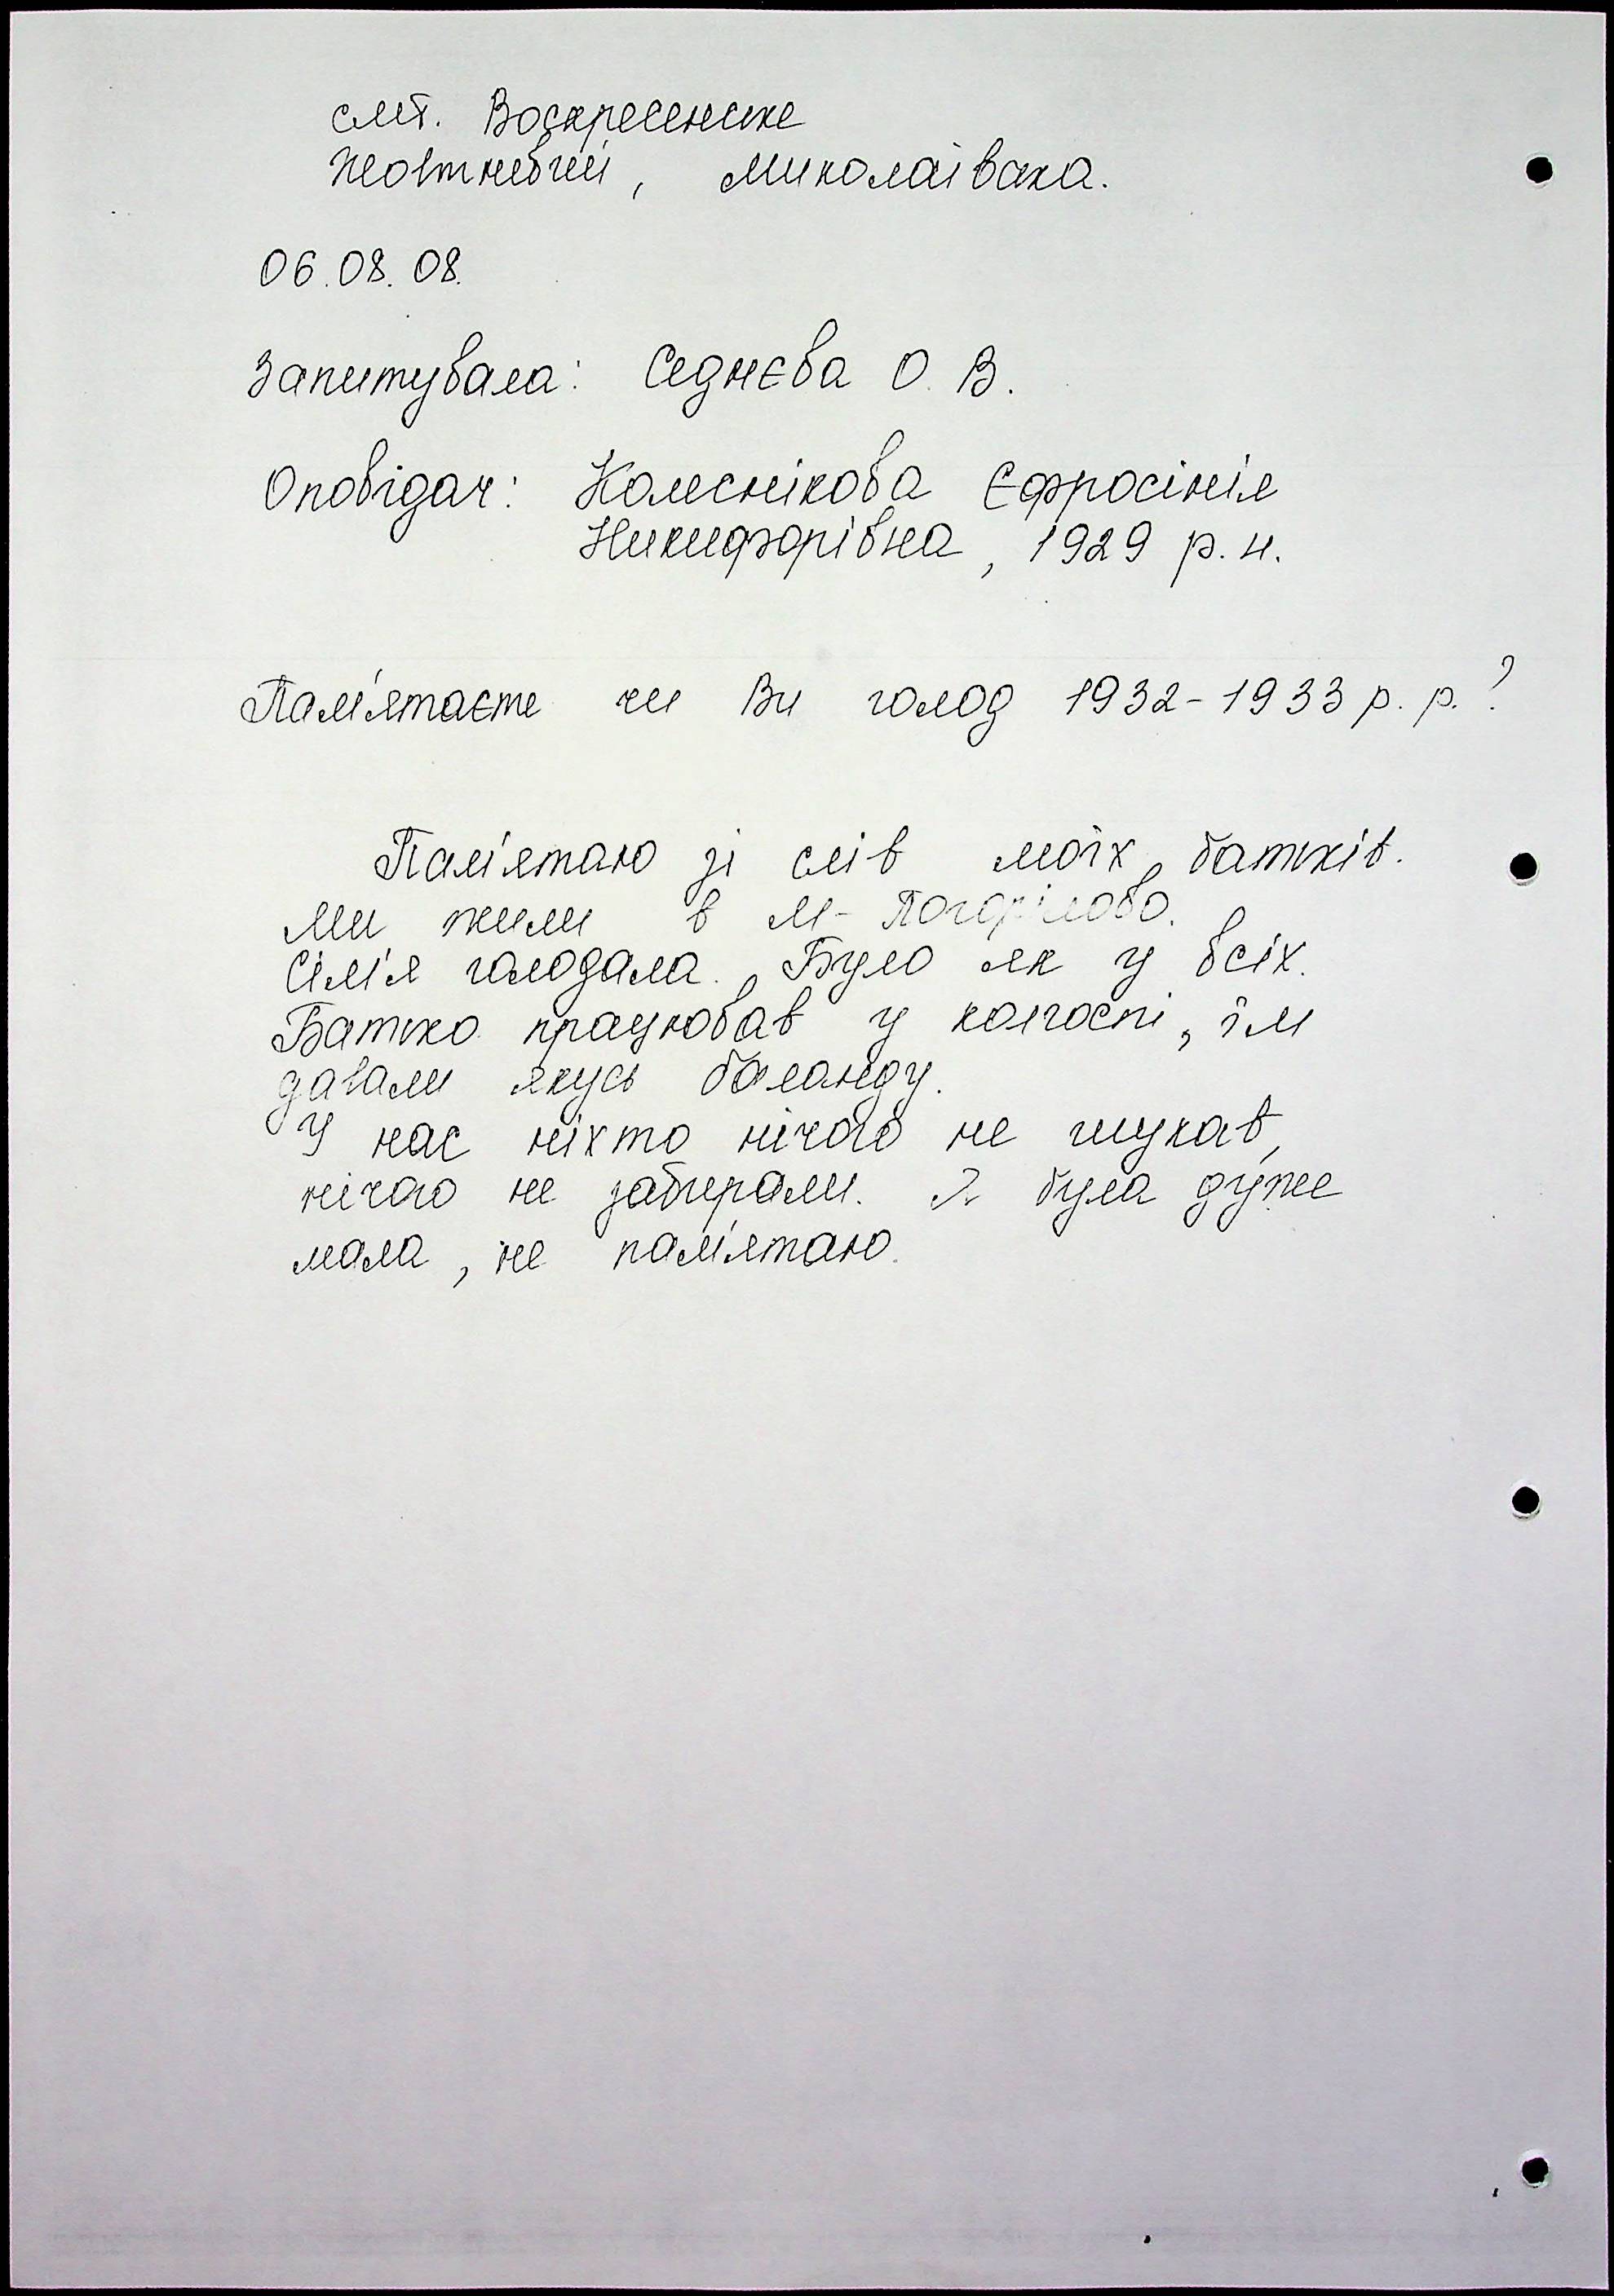 смт. Воскресенське
Жовтневий, Миколаївська.
06.08.08.
Запитувала: Седнєва О. В.
Оповідач: Колєснікова Єфросінія
Никифорівна, 1929 р. н.
Пам'ятаєте чи Ви голод 1932-1933 р. р.?
Пам'ятаю зі слів моїх батьків.
Ми жили в М-Погорілово.
Сім'я голодала. Було як у всіх.
Батько працював у колгоспі, їм
давали якусь баланду.
У нас ніхто нічого не шукав,
нічого не забирали. Я була дуже
мала, не пам'ятаю.